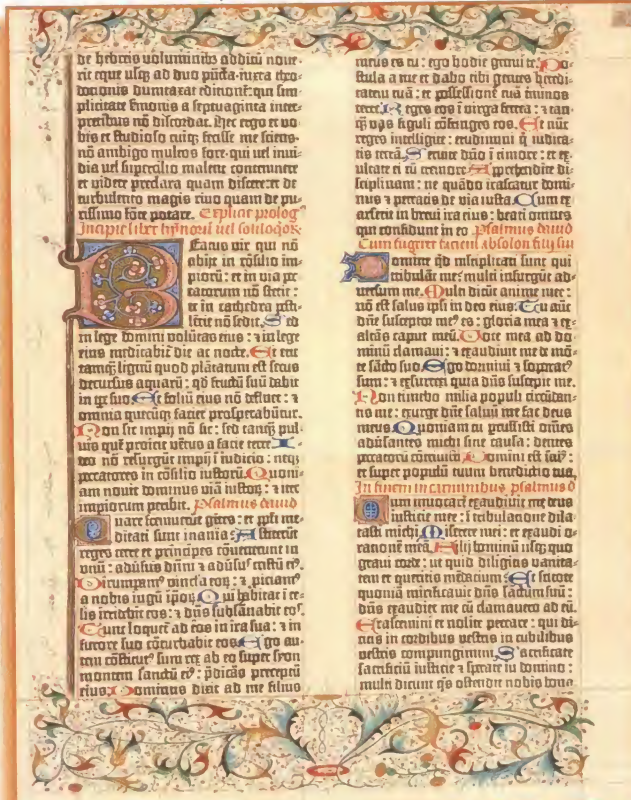 de hebreis voluminibꝫ additū noue-
rit eque usqꝫ ad duo pūcta · iuxta theo-
docionis dumtaxat editionē: qui sim-
plicitate s̄monis a septuaginta inter-
pretibus nō discordat. Hec ergo et vo-
bis et studioso cuiqꝫ fecisse me sciens:
nō ambigo multos fore · qui vel invi-
dia vel supercilio malent contemnere
et videre preclara quam discere: et de
turbulento magis rivo quam de pu-
rissimo fōte potare. Explicit prologꝰ
Incipit liber hymnorū vel soliloqorꝫ
Beatus vir qui nō
abijt in cōsilio im-
piorū: et in via pec-
catorum nō stetit:
et in cathedra pesti-
lētie nō sedit. Sed
in lege domini volūtas eius: ⁊ in lege
eius meditabit̄ die ac nocte. Et erit
tamqꝫ lignū quod plātatum est secus
decursus aquarū: qd̄ fructū suū dabit
in tp̄e suo. Et foliū eius nō defluet: ⁊
omnia quecūqꝫ faciet prosperabūtur.
Non sic impij nō sic: sed tamqꝫ pul-
vis quē proicit vētus a facie terre. I-
deo nō resurgūt impij ī iudicio: neqꝫ
peccatores in cōsilio iustorū. Quoni-
am novit dominus viā iustorꝫ: ⁊ iter
impiorum peribit. Psalmus david
Quare fremuerūt gētes: et ppl̄i me-
ditati sunt inania. Astiterūt
reges terre et principes cōvenerunt in
unū: advsus dn̄m et advsus cristū eiꝰ.
Dirumpamꝰ vincla eorꝫ: ⁊ piciamꝰ
a nobis iugū ipsorꝫ. Qui habitat ī ce-
lis irridebit eos: ⁊ dn̄s subsānabit eoˢ.
Tunc loquet̄ ad eos in ira sua: ⁊ in
furore suo cōturbabit eos. Ego au-
tem cōstitutꝰ sum rex ab eo super syon
montem sanctū eiꝰ: p̄dicās preceptū
eius. Dominus dixit ad me filius
meus es tu: ego hodie genui te. Po-
stula a me et dabo tibi gentes heredi-
tatem tuā: et possessionē tuā t̄minos
terre. Reges eos ī virga ferrea: ⁊ tan-
qꝫ vas figuli cōfringes eos. Et nūc
reges intelligite: erudimini q̄ iudica-
tis terrā. Servite dn̄o ī timore: et ex-
ultate ei cū tremore. Apprehendite di-
sciplinam: ne quādo irascatur domi-
nus ⁊ pereatis de via iusta. Cum ex-
arserit in brevi ira eius: beati omnes
qui confidunt in eo. Psalmus david
Cum fugeret a facie absolon filij sui
Domine qd̄ m̄ltiplicati sunt qui
tribulāt me: multi insurgūt ad-
versum me. Multi dicūt anime mee:
nō est salus ipsi in deo eius. Tu autē
dn̄e susceptor meꝰ es: gloria mea ⁊ ex-
altās caput meū. Voce mea ad do-
minū clamavi: ⁊ exaudivit me de mō-
te sc̄to suo. Ego dormivi ⁊ soporatꝰ
sum: ⁊ exsurrexi quia dn̄s suscepit me.
Non timebo milia populi circūdan-
tis me: exurge dn̄e salvū me fac deus
meus. Quoniam tu pcussisti om̄es
advsantes michi sine causa: dentes
peccatorū cōtrivisti. Domini est salꝰ:
et super populū tuum benedictio tua.
In finem in carminibus psalmus d
Cum invocarē exaudivit me deus
iusticie mee: ī tribulatione dila-
tasti michi. Miserere mei: et exaudi o-
rationē meā. Filij hominū usqꝫ quo
gravi corde: ut quid diligitis vanita-
tem et queritis mēdacium. Et scitote
quoniā mirificavit dn̄s sanctum suū:
dn̄s exaudiet me cū clamavero ad eū.
Irascemini et nolite peccare: qui di-
citis in cordibus vestris in cubilibus
vestris compungimini. Sacrificate
sacrificiū iusticie ⁊ sperate in domino:
multi dicunt qͥs ostendit nobis bona